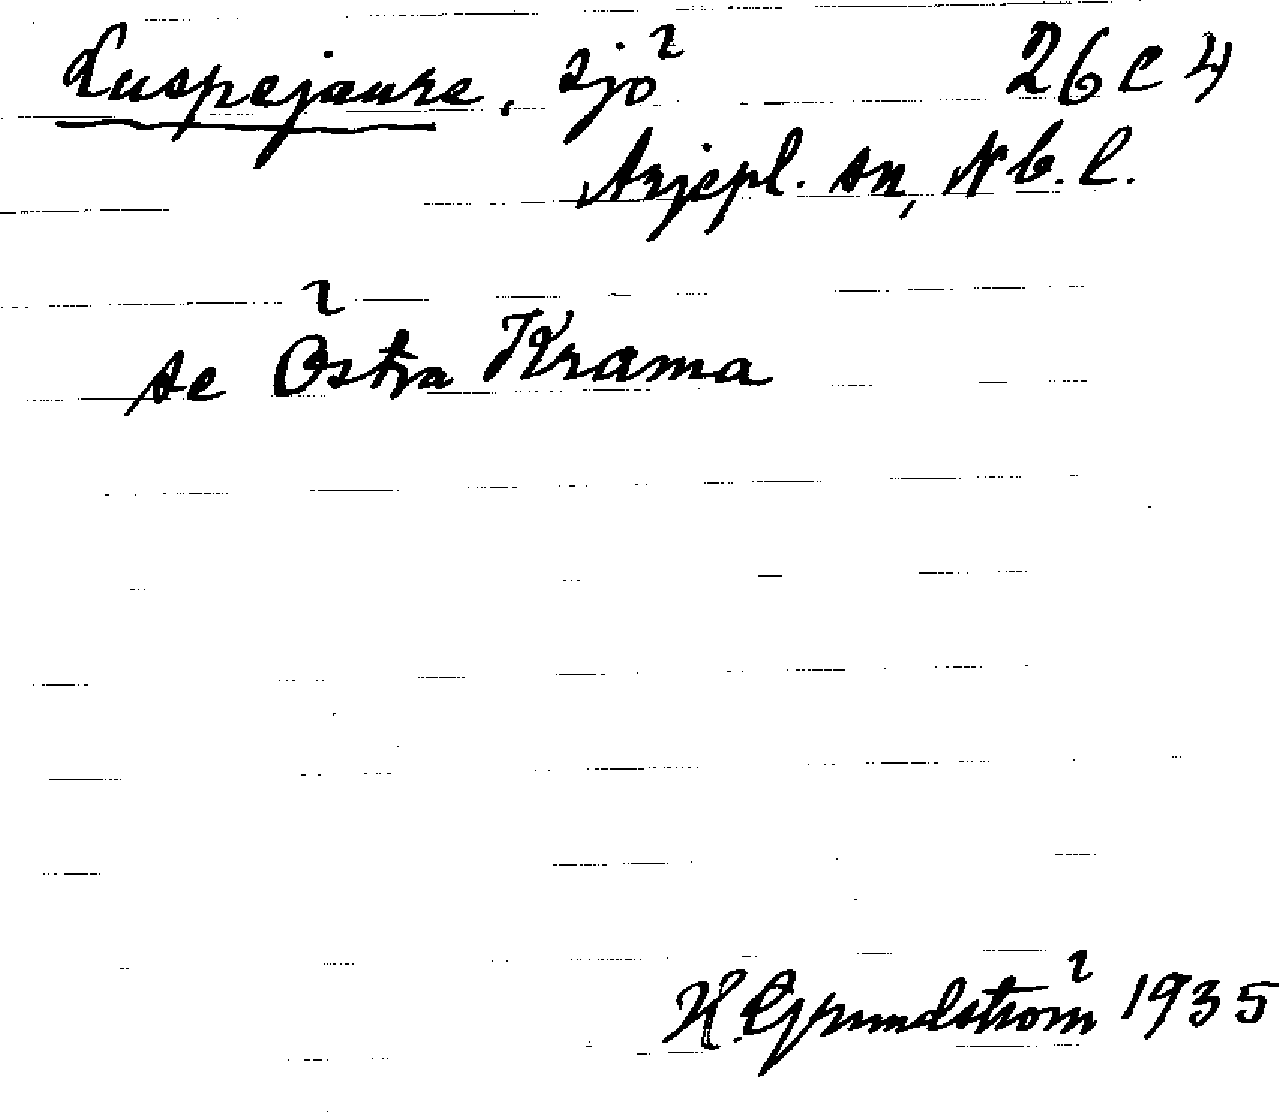 Luspejaure, sjö 26 C 4
Arjepl. sn, Nb. l.
se Östra Krama
H. Grundström 1935